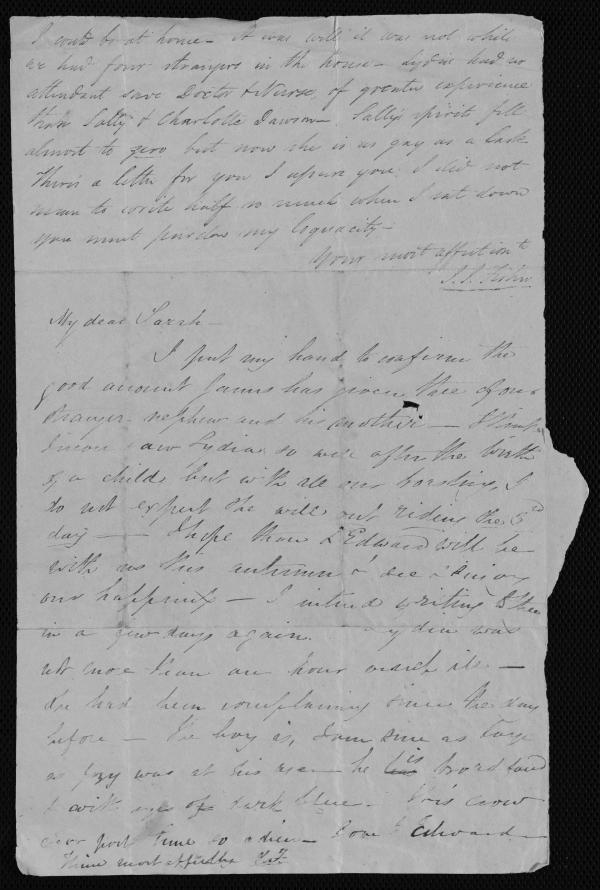 I could be at home – it was well it was not while
we had four strangers in the house – Lydia had no
attendant save Doctor & Nurse, of greater experience
than Sally & Charlotte Dawson – Sally's spirits fell
almost to zero but now she is as gay as a lark
There's a letter for you I assure you; I did not
mean to write half so much when I sat down
you must pardon my loquacity –
Your most affectionte
My dear Sarah –
I put my hand to confirm the
good account James has given thee of our
stranger nephew and his mother – I think
I never saw Lydia so well after the birth
of a child but with all our boasting, I
do not expect she will out riding the 3rd
day – I hope thou & Edward will be
with us this autumn & see & enjoy
our happiness – I intend writing to thee
in a few days again. Lydia was
not more than an hour ill –
she had been complaining since the day
before – the boy is, I am sure as large
as was at his he is broad faced
& with eyes of dark blue –
post time so adieu – love to Edward –
Thine most affectly